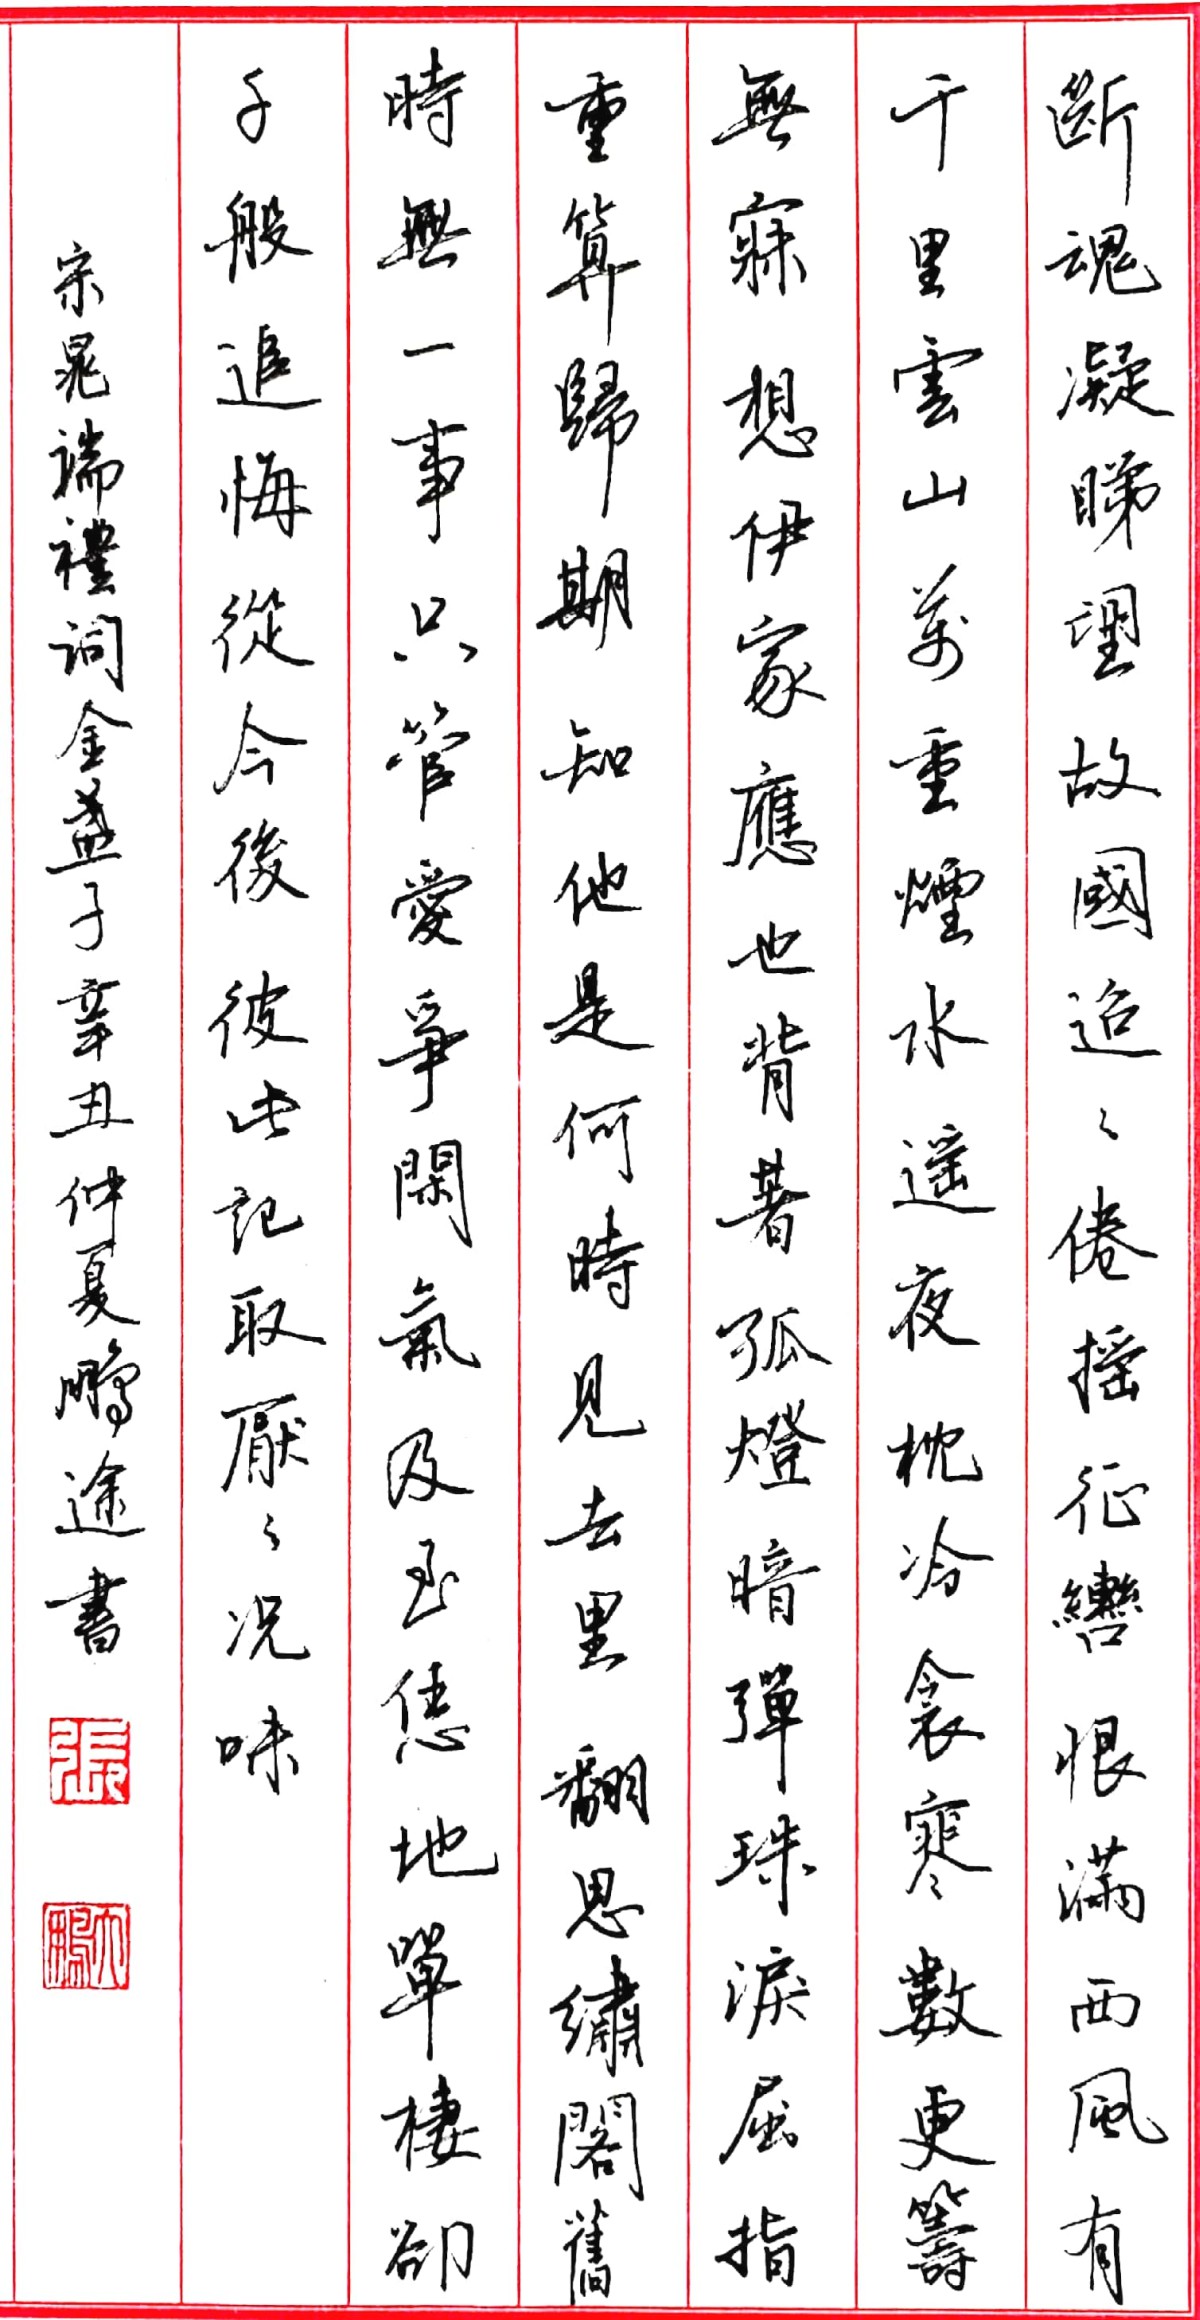 斷魂凝睇望故國迢〻倦摇征轡恨滿西風有
千里雲山萬重煙水遥夜枕冷衾寒數更籌
無寐想伊家應也背著孤燈暗彈珠淚屈指
重算歸期知他是何時見去里翻思繡閣舊
時無一事只管愛爭閑氣及至恁地單棲卻
千般追悔從今後彼此記取厭〻况味
宗晁端禮詞金盞子辛丑仲夏鵬途書
張